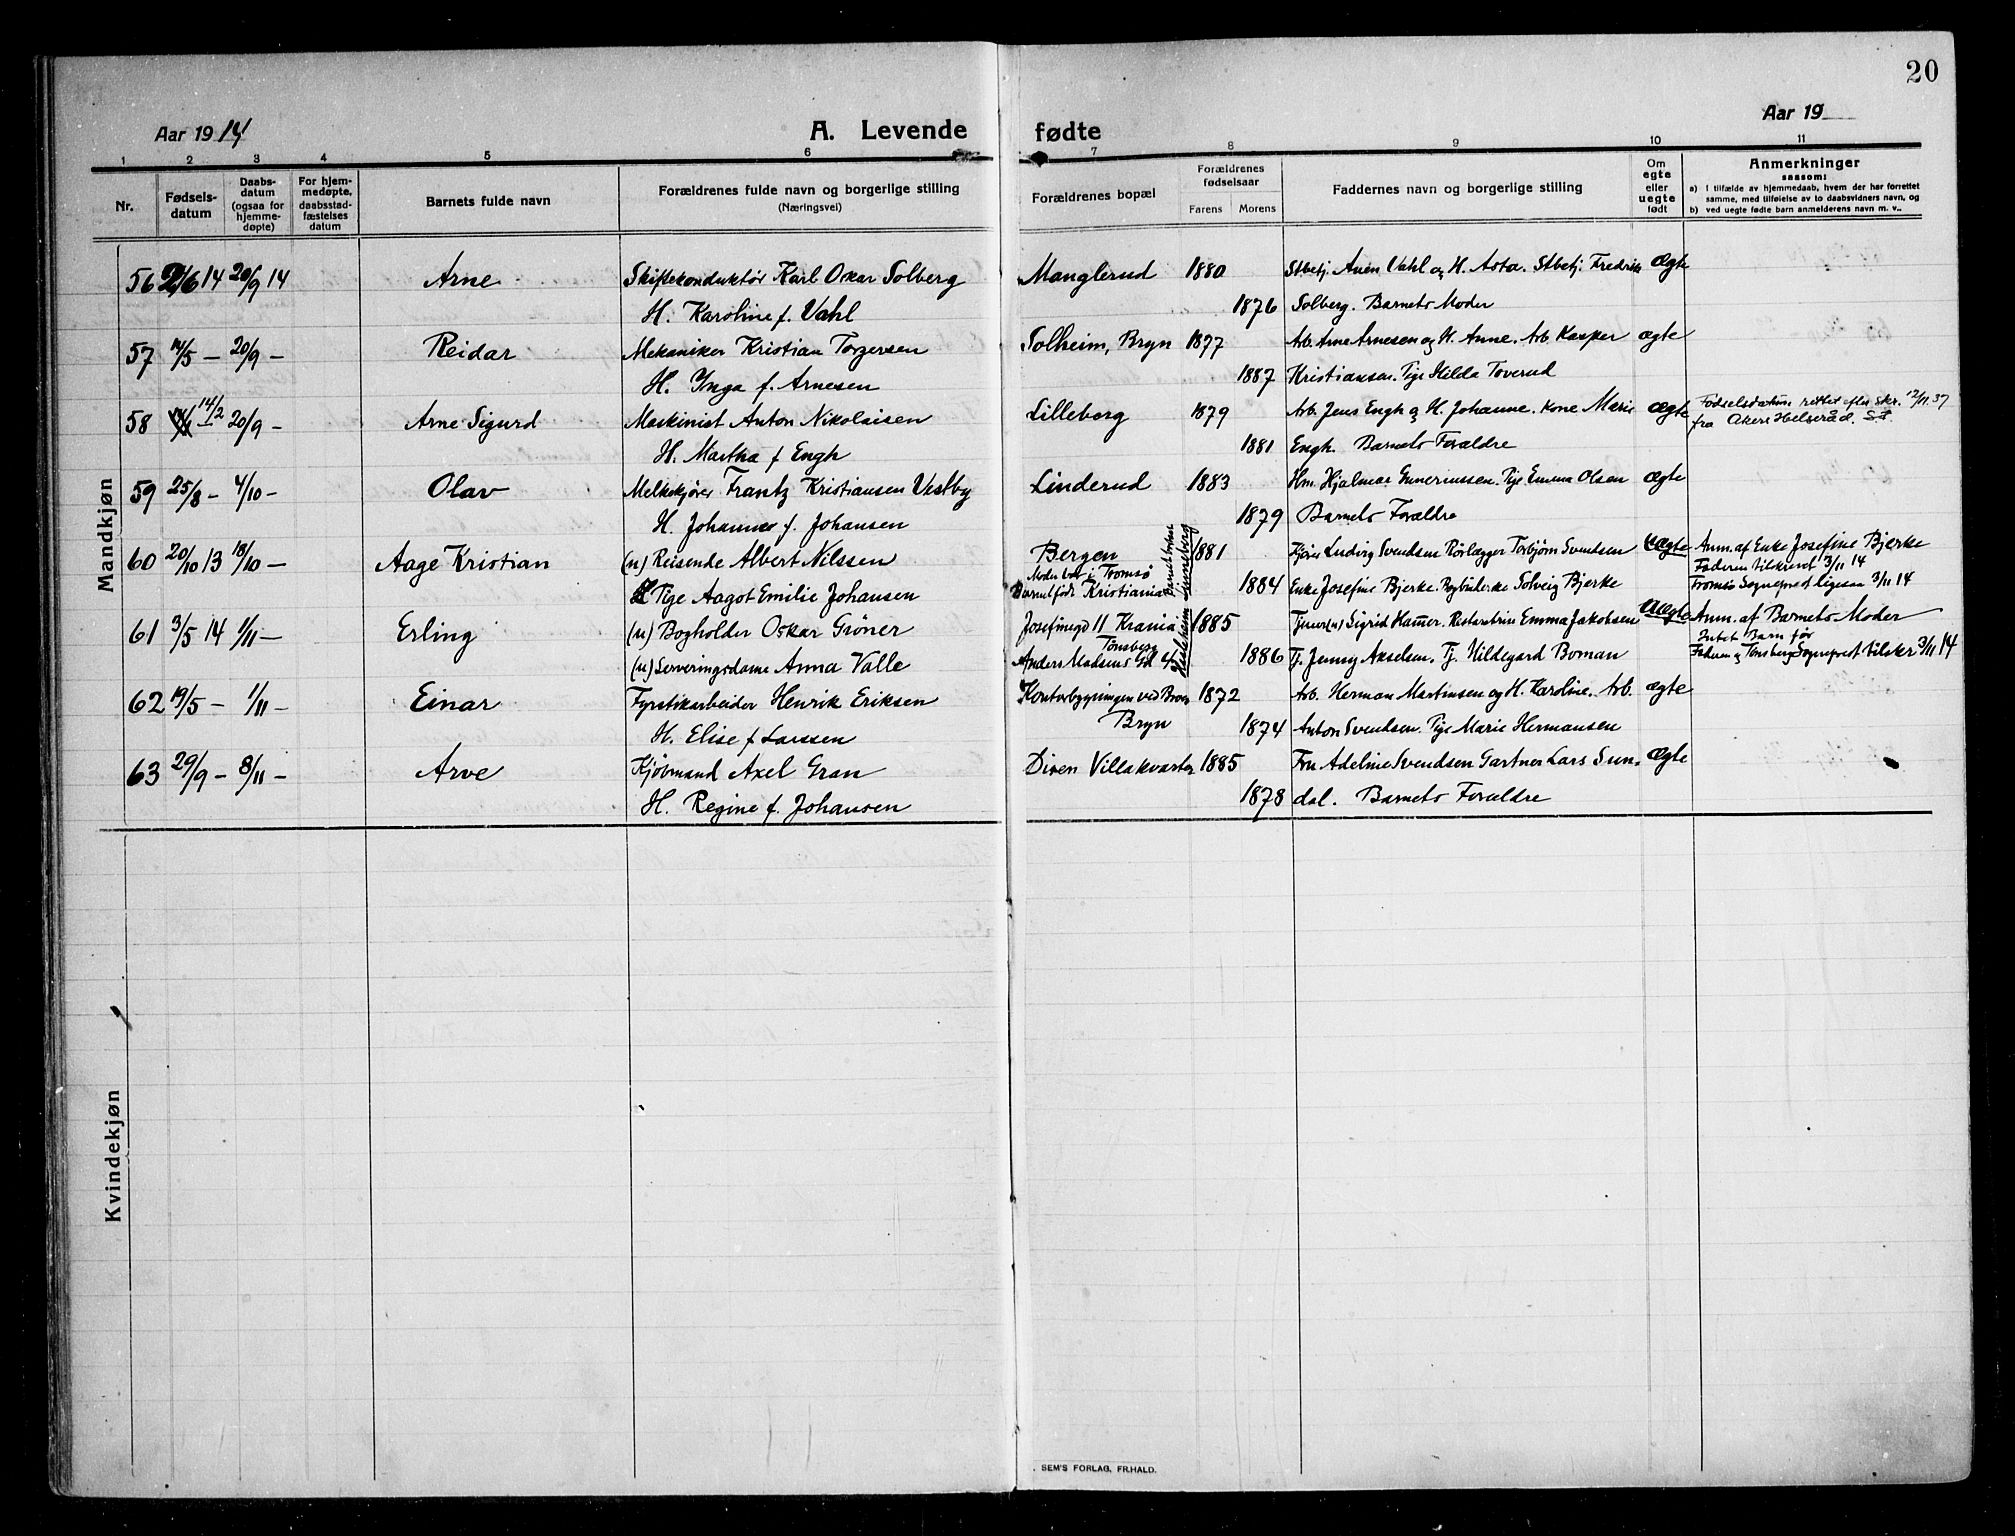 20
Aar 1914
A. Levende fødte
Aar 19
1 2 3 4 5 6 7 8 9 10 11
Nr.
Fødsels-
datum
Daabs-
datum
(ogsaa for
hjemme-
døpte)
For hjem-
medøpte,
daabsstad-
fæstelses
datum
Barnets fulde navn
Forældrenes fulde navn og borgerlige stilling
(Næringsvei)
Forældrenes bopæl
Forældrenes
fødselsaar
Farens Morens
Faddernes navn og borgerlige stilling
Om
egte
eller
uegte
født
Anmerkninger
saasom:
a) I tilfælde av hjemmedaab, hvem der har forrettet
samme, med tilføielse av to daabsvidners navn, og
b) ved uegte fødte barn anmelderens navn m. v..
Mandkjøn
56 2/6 14 20/9 14 Arne Skiftekonduktør Karl Oskar Solberg Manglerud 1880 Stbetj. Auen Vahl og H. Asta. Stbetj. Fredrik ægte
H. Karoline f. Vahl 1876 Solberg. Barnets Moder
57 14/5 – 20/9 – Reidar Mekaniker Kristian Torgersen Solheim, Bryn 1877 Arb. Arne Arnesen og H. Anne. Arb Kasper ægte
H. Ynga f. Arnesen 1887 Kristiansen. Pige Hilda Toverud
58 14/2 20/9 – Arne Sigurd Maskinist Anton Nikolaisen Lilleborg 1879 Arb. Jens Engh og H. Johanne. Kone Marie ægte Fødselsdatum rettet efter skr. 12/11.37
H. Martha f Engh 1881 Engh. Barnets Forældre fra Akers Helseråd. S.S.
59 25/8 – 4/10 – Olav Melkekjører Frantz Kristiansen Vestby Linderud 1883 Hm. Hjalmar Gunerinssen. Pige Emma Olsen ægte
H. Johanne f. Johansen 1879 Barnets Forældre
60 20/10 13 18/10 – Aage Kristian (u) Reisende Albert Nilssen Bergen 1881 Kjører Ludvig Svendsen Rörlægger Torbjørn Svendsen Uægte Anm. af Enke Josefine Bjerke
Moder bor i Tromsø Faderen tilskrevet 3/11 14
Pige Aagot Emilie Johansen Barnet født Kristiania 1884 Enke Josefine Bjerke. Solveig Bjerke Tromsø Sogneprest ligesaa 3/11 14
61 3/5 14 1/11 – Erling (u) Bogholder Oskar Grøner Josefinegd 11 Krania 1885 Tjener(u) Sigrid Hammer. Emma Jakobsen Uægte Anm. af Barnets Moder
Tønsberg Intet Barn før
(u) Serveringsdame Anna Valle Anders Madsens Gd 4 1886 Tj. Jenny Akselsen. Tj. Hildegard Boman Faderen og Tønsberg Sogneprest tilskr 3/11 14
62 19/5 – 1/11 – Einar Fyrstikarbeider Henrik Eriksen Kontorbygningen ved Broen 1872 Arb. Herman Martinsen og H. Karoline. Arb. ægte
H. Elise f Larssen Bryn 1874 Anton Svendsen. Pige Marie Hermansen
63 29/9 – 8/11 – Arve Kjøbmand Axel Gran Disen Villakvarter 1885 Fru Adeline Svendsen Gartner Lars Sun- ægte
H. Regine f. Johansen 1878 dal. Barnets Forældre
Kvindekjøn
. SEM'S FORLAG, FR.HALD.